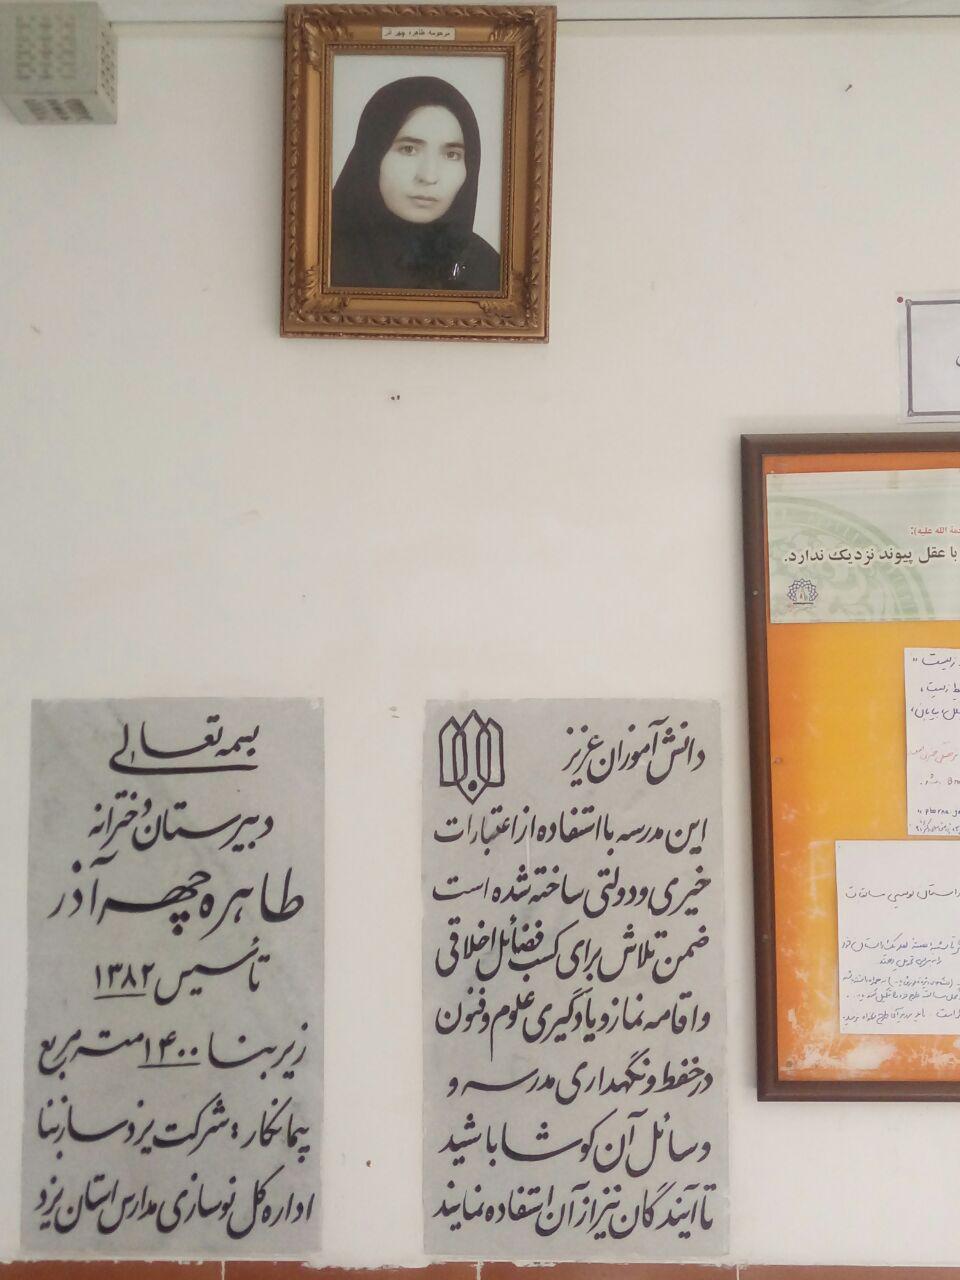 مرحومه طاهره چهر آذر
بسمه تعالی
دبیرستان دخترانه
طاهره چهر آذر
تأسیس ۱۳۸۲
زیر بنا ۱۴۰۰ متر مربع
پیمانکار : شرکت یزد سازبنا
اداره کل نوسازی مدارس استان یزد
دانش آموزان عزیز
این مدرسه با استفاده از اعتبارات
خیری و دولتی ساخته شده است
ضمن تلاش برای کسب فضائل اخلاقی
و اقامه نماز و یادگیری علوم و فنون
در حفظ و نگهداری مدرسه و
وسائل آن کوشا باشید
تا آیندگان نیز از آن استفاده نمایند
الله علیه):
با عقل پیوند نزدیک ندارد.